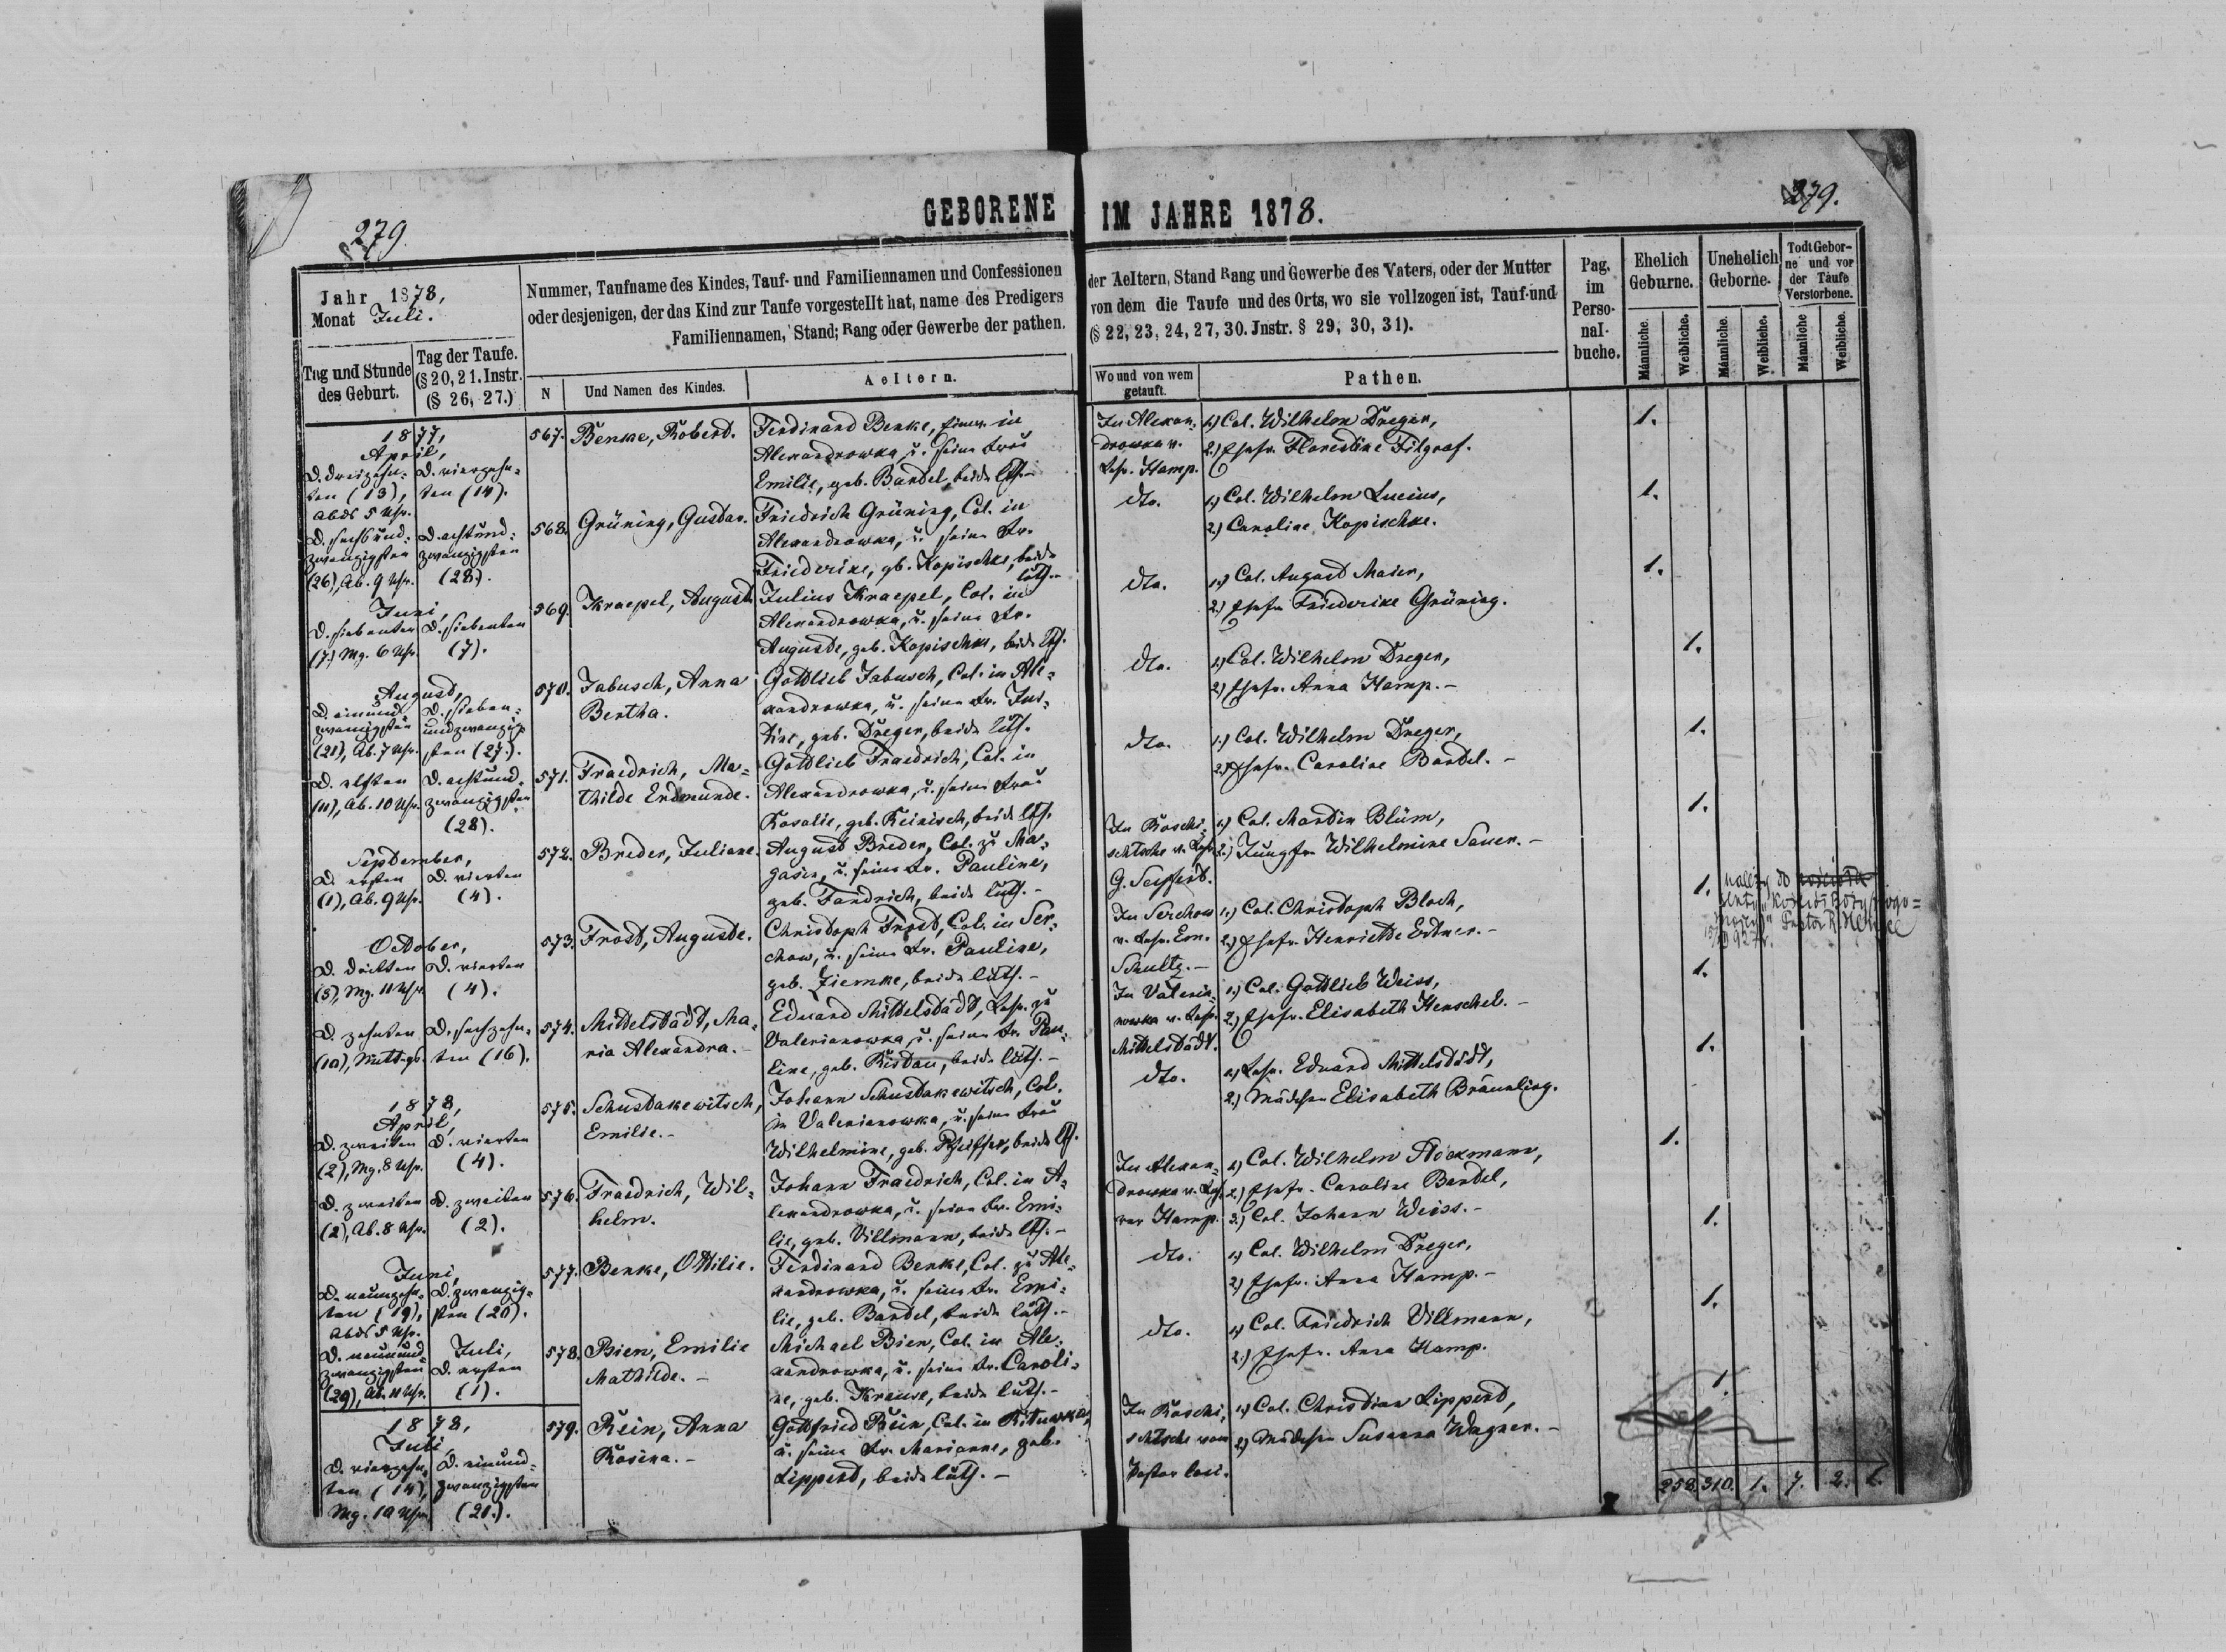 279
GEBORENE
IM JAHRE 1878.
279.
Jahr 1878,
Monat Juli.
Tag und Stunde
des Geburt.
Tag der Taufe.
(§ 20, 21. Instr.
(§ 26, 27.)
Nummer, Taufname des Kindes, Tauf- und Familiennamen und Confessionen
oder desjenigen, der das Kind zur Taufe vorgestellt hat, name des Predigers
Familiennamen, Stand; Rang oder Gewerbe der pathen.
N
Und Namen des Kindes.
Aeltern.
der Aeltern, Stand Rang und Gewerbe des Vaters, oder der Mutter
von dem die Taufe und des Orts, wo sie vollzogen ist, Tauf-und
(§ 22, 23, 24, 27, 30. Jnstr. § 29, 30, 31).
Wo und von wem
getauft.
Pathen.
Pag.
im
Perso-
nal-
buche.
Ehelich
Geburne.
Unehelich
Geborne.
Todt Gebor-
ne und vor
der Taufe
Verstorbene.
Männliche.
Weibliche.
Männliche.
Weibliche.
Männliche
Weibliche.
1877,
April,
D. dreizehn-
ten (13),
Abds 5 Uhr.
D. vierzehn-
ten (14).
567.
Benke, Robert.
Ferdinand Benke, in
Alexandrowka, u. seine Frau
Emilie, geb. Bandel, beide luth.
In Alexan-
drowka v.
Lehr. Hamp.
1.) Col. Wilhelm Dreger,
2.) Ehefr. Florestine Filgraf.
1.
D. sechsund-
zwanzigsten
(26), Ab. 9 Uhr.
D. achtund-
zwanzigsten
(28).
568.
Grüning, Gustav.
Friedrich Grüning, Col. in
Alexandrowka, u. seine Fr.
Friederike, gb. Kopischke, beide
luth.-
dto.
1.) Col. Wilhelm Lucius,
2.) Caroline Kopischke.
1.
Juni,
D. siebenten
(7.) Mg. 6 Uhr.
D. siebenten
(7).
569.
Kraepel, August.
Julius Kraepel, Col. in
Alexandrowka, u. seine Fr.
Auguste, geb. Kopischke, beide lth.
dto.
1.) Col. August Maier,
2.) Ehefr. Friederike Grüning.
1.
August,
D. einund-
zwanzigsten
(21), Ab. 7 Uhr.
D. sieben-
undzwanzig-
sten (27.).
570.
Jabusch, Anna
Bertha.
Gottlieb Jabusch, Col. in Ale-
xandrowka, u. seine Fr. Jus-
tine, geb. Dreger, beide luth.
dto.
1.) Col. Wilhelm Dreger,
2.) Ehefr. Anna Hamp.-
1.
D. elften
(11), Ab. 10 Uhr.
D. achtund-
zwanzigsten
(28).
571.
Fraedrich, Ma-
thilde Erdmunde.
Gottlieb Fraedrich, Col. in
Alexandrowka, u. seine Frau
Rosalie, geb. Reinisch, beide lth.
dto.
1.) Col. Wilhelm Dreger,
2.) Ehefr. Caroline Bardel.-
1.
September,
D. ersten
(1), Ab. 9 Uhr.
D. vierten
(4).
572.
Breder, Juliane.
August Breder, Col. zu Ma-
gasin, u. seine Fr. Pauline,
geb. Fandrich, beide luth.-
In Roschi-
schtsche v. Lehr.
G. Seifert.
1.) Col. Martin Blüm,
2.) Jungfr. Wilhelmine Sauer.-
1.
October,
D. dritten
(3), Mg. 11 Uhr.
D. vierten
(4).
573.
Frost, Auguste.
Christoph Frost, Col. in Ser-
chow, u. seine Fr. Pauline,
geb. Ziemke, beide luth.-
In Serchow
v. Lehr. Em.
Schultz.-
1.) Col. Christoph Bloch,
2.) Ehefr. Henriette Ertner.-
1.
Pastor R.
D. zehnten
(10), Mittgs.
D. sechzehn-
ten (16).
574.
Mittelstädt, Ma-
ria Alexandra.-
Eduard Mittelstädt, Lehr. zu
Valerianowka, u. seine Fr. Pau-
line, geb. Ristau, beide luth.-
In Valeria-
nowka v. Lehr.
Mittelstädt.
1.) Col. Gottlieb Weiss,
2.) Ehefr. Elisabeth Henschel.-
1.
1878,
April,
D. zweiten
(2), Mg. 8 Uhr.
D. vierten
(4).
575.
Schustakewitsch,
Emilie.-
Johann Schustakewitsch, Col.
in Valerianowka, u. seine Frau
Wilhelmine, geb. Pfeiffer, beide lth.
dto.
1.) Lehr. Eduard Mittelstädt,
2.) Mädchen Elisabeth Bräunling.
1.
D. zweiten
(2), Ab. 8 Uhr.
D. zweiten
(2).
576.
Fraedrich, Wil-
helm.
Johann Fraedrich, Col. in A-
lexandrowka, u. seine Fr. Emi-
lie, geb. Villmann, beide lth.-
In Alexan-
drowka v. Leh-
rer Hamp.
1.) Col. Wilhelm Stockmann,
2.) Ehefr. Caroline Bardel,
3.) Col. Johann Weiss.-
1.
Juni,
D. neunzehn-
ten (19),
Abds 5 Uhr.
D. zwanzig-
sten (20).
577.
Benke, Ottilie.
Ferdinand Benke, Col. zu Ale-
xandrowka, u. seine Fr. Emi-
lie, geb. Bardel, beide luth.-
dto.
1.) Col. Wilhelm Dreger,
2.) Ehefr. Anna Hamp.-
1.
D. neunund-
zwanzigsten
(29), Ab. 11 Uhr.
Juli,
D. ersten
(1).
578.
Bien, Emilie
Mathilde.-
Michael Bien, Col. in Ale-
xandrowka, u. seine Fr. Caroli-
ne, geb. Krause, beide luth.-
dto.
1.) Col. Friedrich Villmann,
2.) Ehefr. Anna Hamp.
1.
1878,
Juli,
D. vierzehn-
ten (14),
Mg. 10 Uhr.
D. einund-
zwanzigsten
(21.).
579.
Rein, Anna
Rosina.-
Gottfried Rein, Col. in
u. seine Fr. Marianne, geb.
Lippert, beide luth.-
In Roschi-
schtsche vom
Pastor loci.
1.) Col. Christian Lippert,
2.) Mädchen Susanna Wagner.-
1.
258. 310. 1. 7. 2. 1.